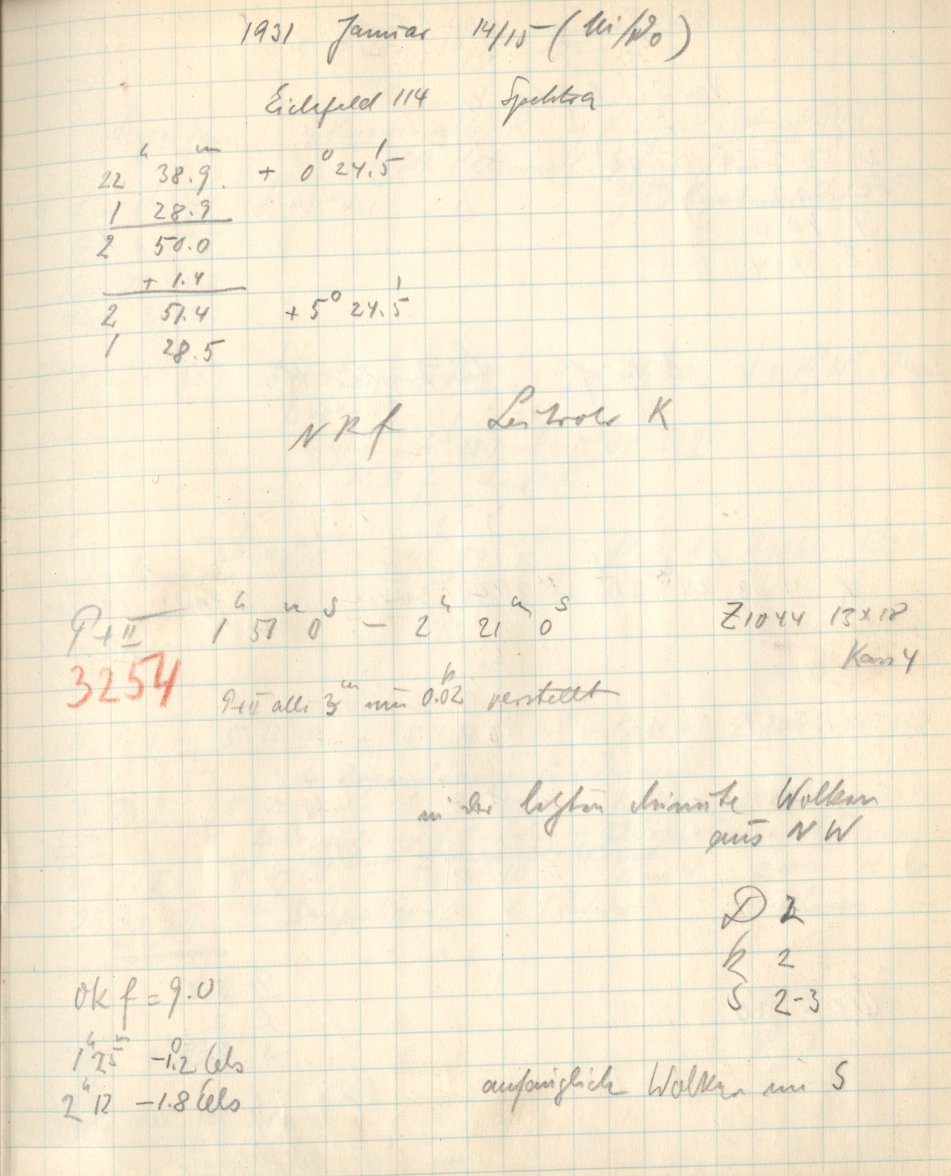 1931 Januar 14/15 (Mi/Do)
Eichfeld 114 Spektra
22ʰ 38.9ᵐ + 0° 24.5'
1 28.9
2 50.0
+ 1.4
2 51.4 + 5° 24.5'
1 28.5
NRf Leitrohr K
P+II 1ʰ 51ᵐ 0ˢ – 2ʰ 21ᵐ 0ˢ Z1044 13x18
3254 Kass 4
P+II alle 3ᵐ um 0.02 verstellt
in der letzten Minute Wolken
aus NW
D 2
R 2
S 2-3
Okf = 9.0
1ʰ 25ᵐ -1.2° Cels
2ʰ 12 -1.8 Cels
anfänglich Wolken im S